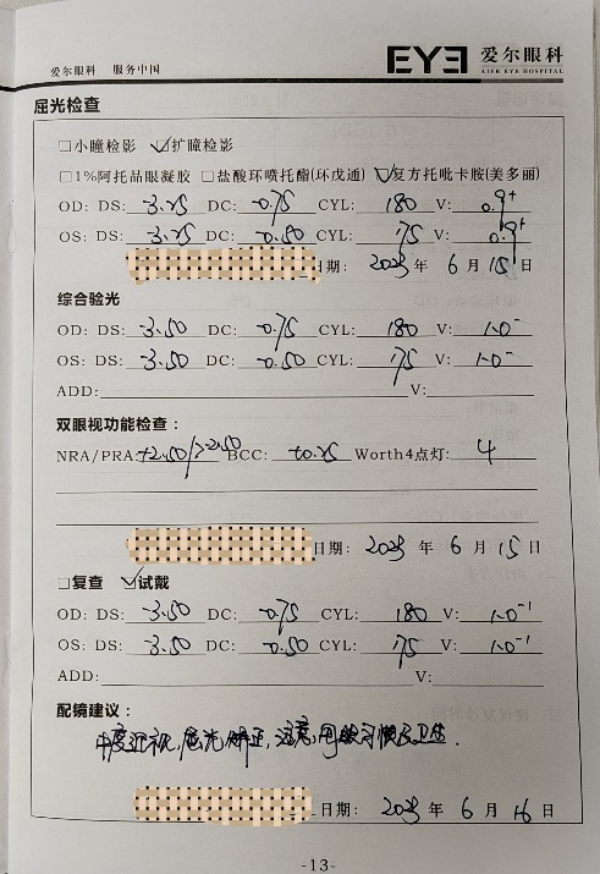 爱尔眼科 服务中国
EYE 爱尔眼科
AIER EYE HOSPITAL
屈光检查
□小瞳检影 ☑扩瞳检影
□1%阿托品眼凝胶 □盐酸环喷托酯(环戊通) ☑复方托吡卡胺(美多丽)
OD: DS: -3.25 DC: -0.75 CYL: 180 V: 0.9+
OS: DS: -3.25 DC: -0.50 CYL: 175 V: 0.9+
日期: 2025 年 6 月 15 日
综合验光
OD: DS: -3.50 DC: -0.75 CYL: 180 V: 1.0-
OS: DS: -3.50 DC: -0.50 CYL: 175 V: 1.0-
ADD: V:
双眼视功能检查:
NRA/PRA: +2.50/>-2.50 BCC: +0.25 Worth4点灯: 4
日期: 2025 年 6 月 15 日
□复查 ☑试戴
OD: DS: -3.50 DC: -0.75 CYL: 180 V: 1.0-1
OS: DS: -3.50 DC: -0.50 CYL: 175 V: 1.0-1
ADD: V:
配镜建议:
中度近视,屈光矫正,注意用眼习惯及卫生.
日期: 2025 年 6 月 16 日
-13-